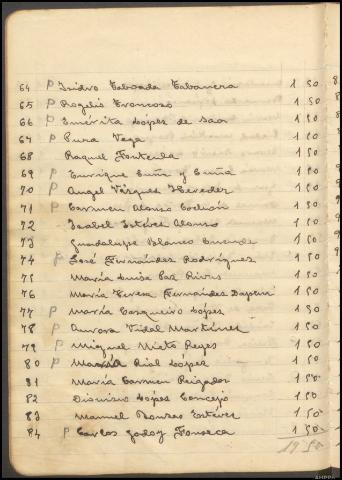 64 P Isidro Taboada Tabanera 1 50
65 P Rogelio Troncoso 1 50
66 P Emérita López de Saa 1 50
67 P Pura Vega 1 50
68 Raquel Fontenla 1 50
69 P Enrique Cuña y Cuña 1 50
70 P Angel Vázquez Hereder 1 50
71 P Carmen Alonso 1 50
72 Isabel Estévez Alonso 1 50
73 Guadalupe Blanco 1 50
74 P José Fernández Rodríguez 1 50
75 María Luisa Paz Rivas 1 50
76 María Teresa Fernández 1 50
77 P María Casqueiro López 1 50
78 P Aurora Vidal Martínez 1 50
79 P Miguel Nieto Reyes 1 50
80 P María Rial López 1 50
81 María Carmen Reigador 1 50
82 Dionisio López Concejo 1 50
83 Manuel Bouzas Estévez 1 50
84 P Carlos Godoy Fonseca 1 50
AHPPO